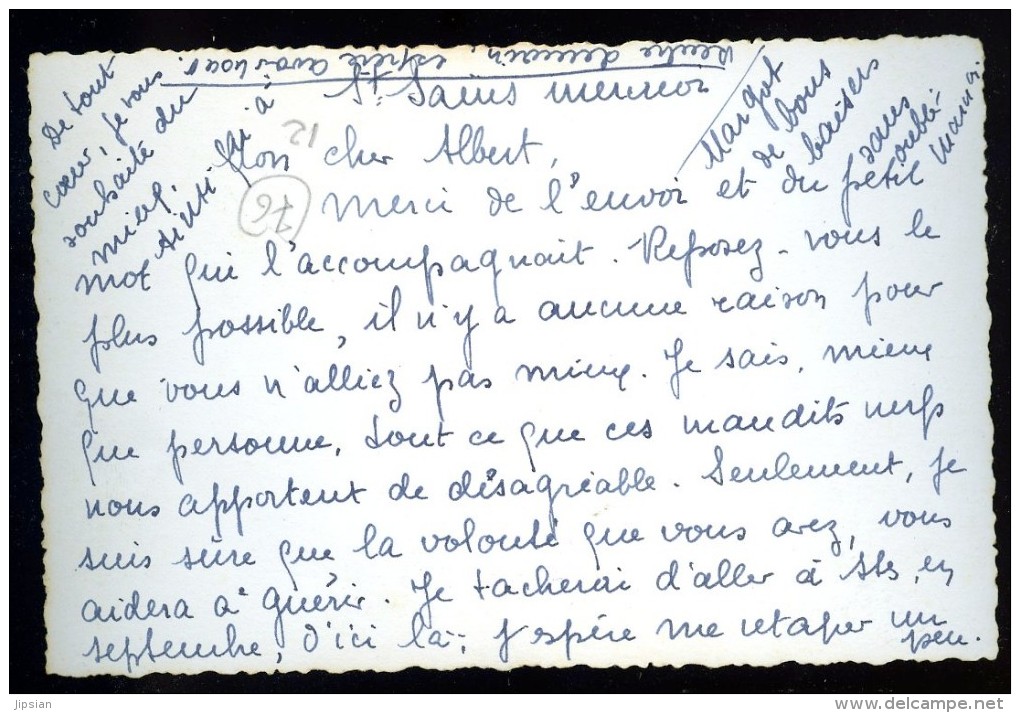 St Saëns mercredi
Mon cher Albert,
Merci de l'envoi et du petit
mot qui l'accompagnait. Reposez-vous le
plus possible, il n'y a aucune raison pour
que vous n'alliez pas mieux. Je sais, mieux
que personne, tout ce que ces maudits nerfs
nous apportent de désagréable. Seulement, je
suis sûre que la volonté que vous avez, vous
aidera à guérir. Je tacherai d'aller à Sts, en
septembre, d'ici là, j'espère me retaper un
peu.
De tout
cœur, je vous
souhaite du
mieux.
Ainsi qu'à
Margot
de bons
baisers
sans
oubli-
12
76
jipsian
www.delcampe.net